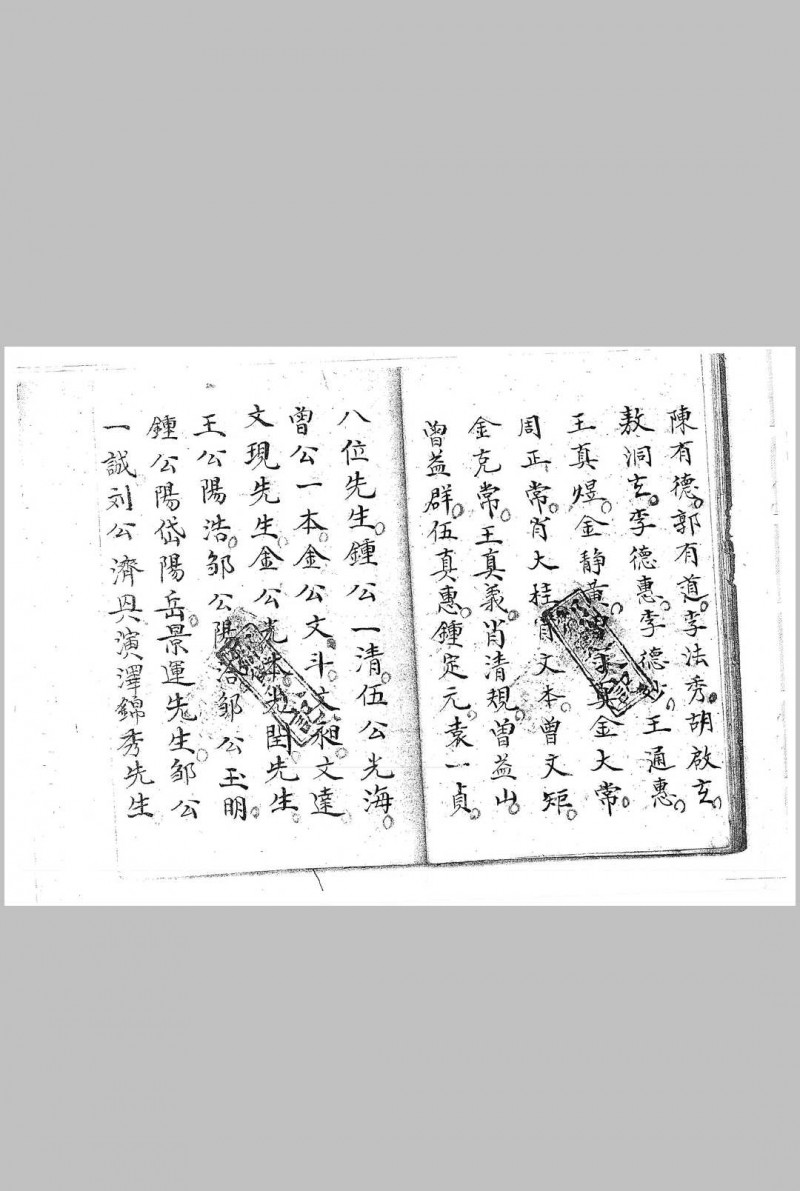 陳有德。郭有道。李法秀。胡啟玄。
敖洞玄。李德惠。李德妙。王通惠。
王真煜。金静黄。金大常。
周正常。肖大桂。肖文本。曾文矩。
金克常。王真義。肖清規。曾益山。
曾益群。伍真惠。鍾定元。袁一貞。
八位先生。鍾公一清。伍公光海。
曾公一本。金公文斗。文昶。文達
文現先生。金公光 先 閏先生。
王公陽浩。邹公陽 邹公玉明。
鍾公陽岱陽岳景運先生。邹公
一誠刘公濟與演澤錦秀先生